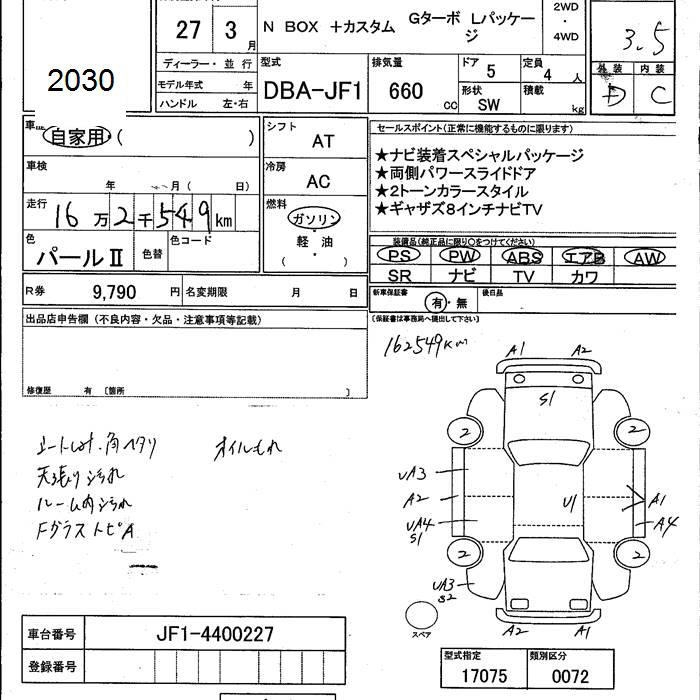 2030
27 3 月
N BOX +カスタム Gターボ Lパッケージ
2WD
・
4WD
3.5
外装 内装
D C
ディーラー・並行
モデル年式 年
ハンドル 左・右
型式
DBA-JF1
排気量
660 CC
ドア 5
定員 4 人
形状 SW
積載 kg
車歴
自家用 ( )
車検
年 月 ( 日)
走行
16万2千549km
色
パールⅡ
色替
色コード
シフト
AT
冷房
AC
燃料
ガソリン
・
軽油
・
( )
セールスポイント(正常に機能するものに限ります)
★ナビ装着スペシャルパッケージ
★両側パワースライドドア
★2トーンカラースタイル
★ギャザズ8インチナビTV
装備品(純正品に限り○をつけてください)
PS PW ABS エアB AW
SR ナビ TV カワ
R券 9,790 円
名変期限 月 日
新車保証書
有・無
後日品
(保証書は事務局へ提出して下さい)
出品店申告欄 (不良内容・欠品・注意事項等記載)
修復歴 有 [箇所 ]
162549KM
シートしみ.角ヘタリ オイルもれ
天張り汚れ
ルーム内汚れ
Fガラストビ A
A1 A2
S1
2 2
UA3
A2
UA4
S1
U1
A1
A4
2 2
UA3
S2
スペア
A2 A1
車台番号 JF1-4400227
登録番号
型式指定 類別区分
17075 0072